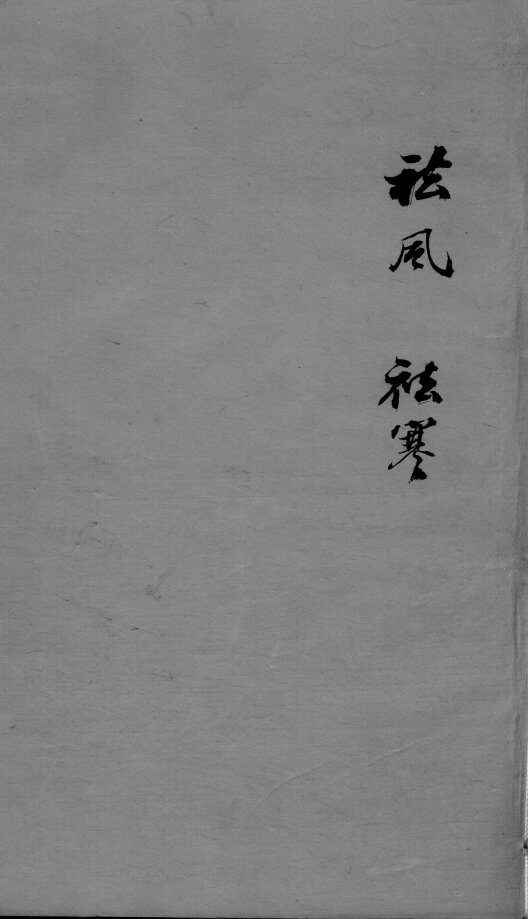 祛風　祛寒